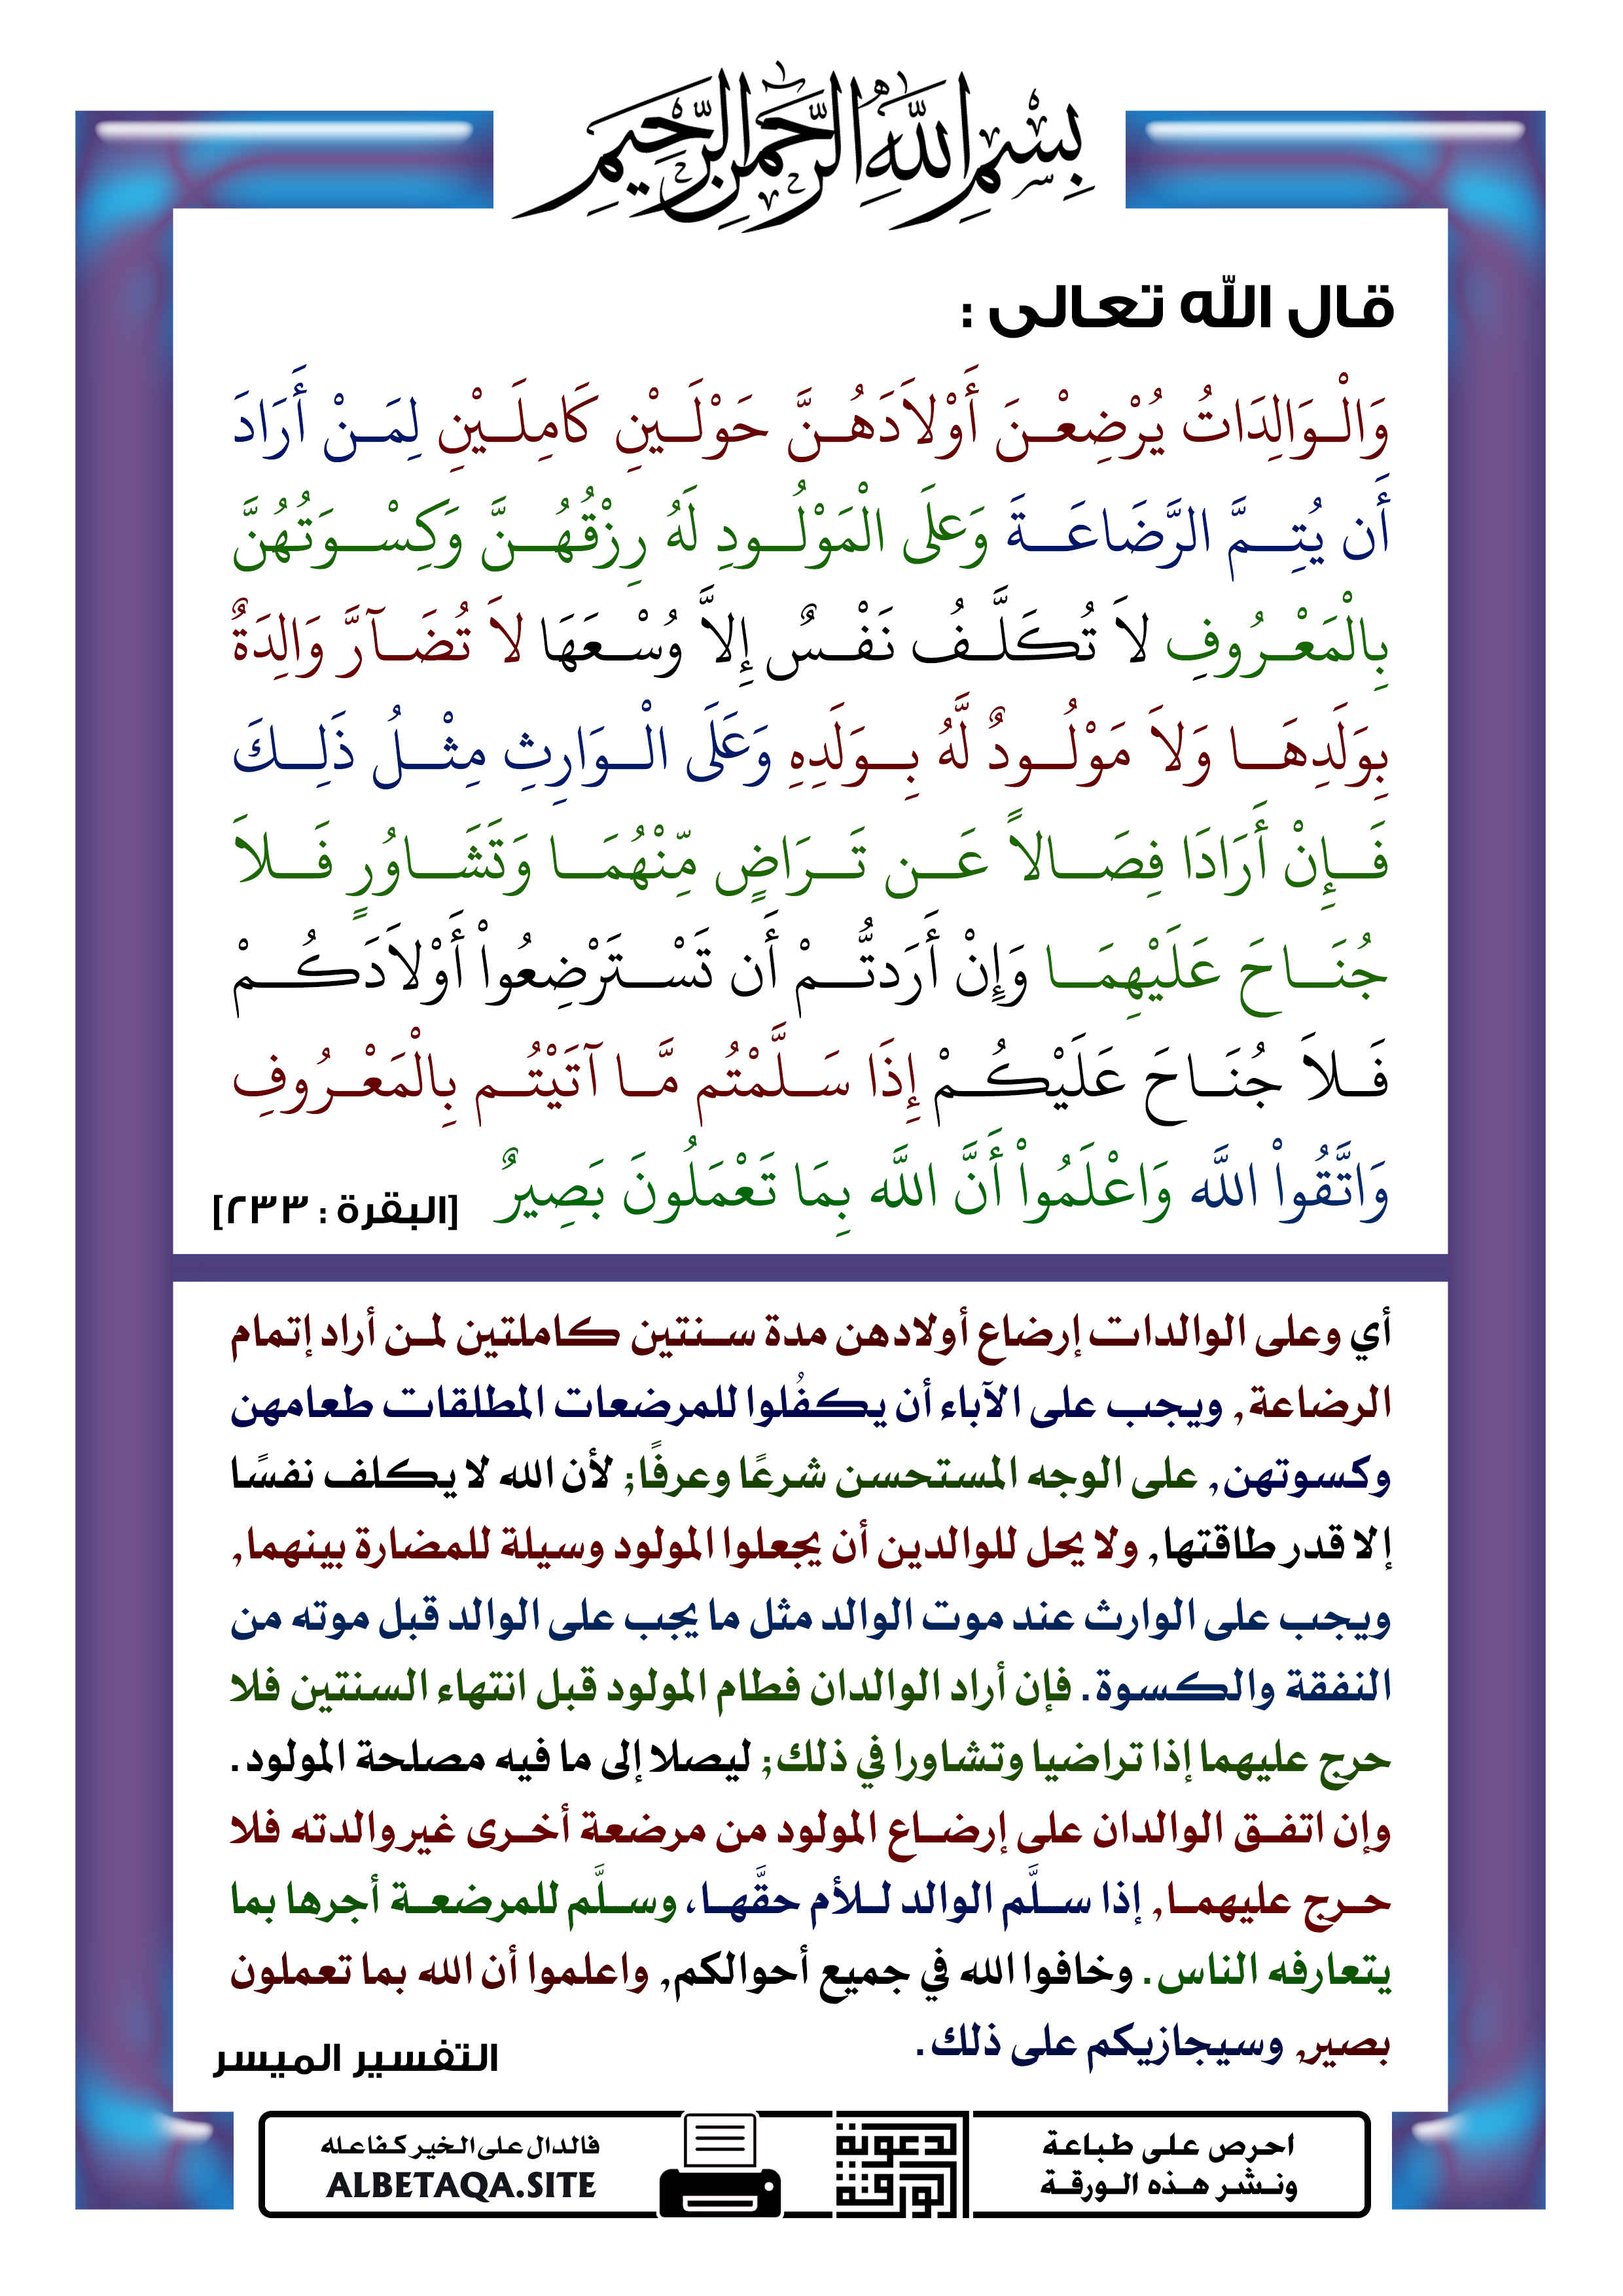 بِسْمِ اللَّهِ الرَّحْمَٰنِ الرَّحِيمِ
قال الله تعالى :
وَالْوَالِدَاتُ يُرْضِعْنَ أَوْلاَدَهُنَّ حَوْلَيْنِ كَامِلَيْنِ لِمَنْ أَرَادَ
أَن يُتِمَّ الرَّضَاعَةَ وَعلَى الْمَوْلُودِ لَهُ رِزْقُهُنَّ وَكِسْوَتُهُنَّ
بِالْمَعْرُوفِ لاَ تُكَلَّفُ نَفْسٌ إِلاَّ وُسْعَهَا لاَ تُضَآرَّ وَالِدَةٌ
بِوَلَدِهَا وَلاَ مَوْلُودٌ لَّهُ بِوَلَدِهِ وَعَلَى الْوَارِثِ مِثْلُ ذَلِكَ
فَإِنْ أَرَادَا فِصَالاً عَن تَرَاضٍ مِّنْهُمَا وَتَشَاوُرٍ فَلاَ
جُنَاحَ عَلَيْهِمَا وَإِنْ أَرَدتُّمْ أَن تَسْتَرْضِعُواْ أَوْلاَدَكُمْ
فَلاَ جُنَاحَ عَلَيْكُمْ إِذَا سَلَّمْتُم مَّا آتَيْتُم بِالْمَعْرُوفِ
وَاتَّقُواْ اللَّه وَاعْلَمُواْ أَنَّ اللَّه بِمَا تَعْمَلُونَ بَصِيرٌ [البقرة : ٢٣٣]
أي وعلى الوالدات إرضاع أولادهن مدة سنتين كاملتين لمن أراد إتمام
الرضاعة, ويجب على الآباء أن يكفُلوا للمرضعات المطلقات طعامهن
وكسوتهن, على الوجه المستحسن شرعًا وعرفًا; لأن الله لا يكلف نفسًا
إلا قدر طاقتها, ولا يحل للوالدين أن يجعلوا المولود وسيلة للمضارة بينهما,
ويجب على الوارث عند موت الوالد مثل ما يجب على الوالد قبل موته من
النفقة والكسوة. فإن أراد الوالدان فطام المولود قبل انتهاء السنتين فلا
حرج عليهما إذا تراضيا وتشاورا في ذلك; ليصلا إلى ما فيه مصلحة المولود.
وإن اتفق الوالدان على إرضاع المولود من مرضعة أخرى غير والدته فلا
حرج عليهما, إذا سلَّم الوالد للأم حقَّها، وسلَّم للمرضعة أجرها بما
يتعارفه الناس. وخافوا الله في جميع أحوالكم, واعلموا أن الله بما تعملون
بصير, وسيجازيكم على ذلك.
التفسير الميسر
احرص على طباعة
ونشر هذه الورقة
الورقة
الدعوية
فالدال على الخير كفاعله
ALBETAQA.SITE